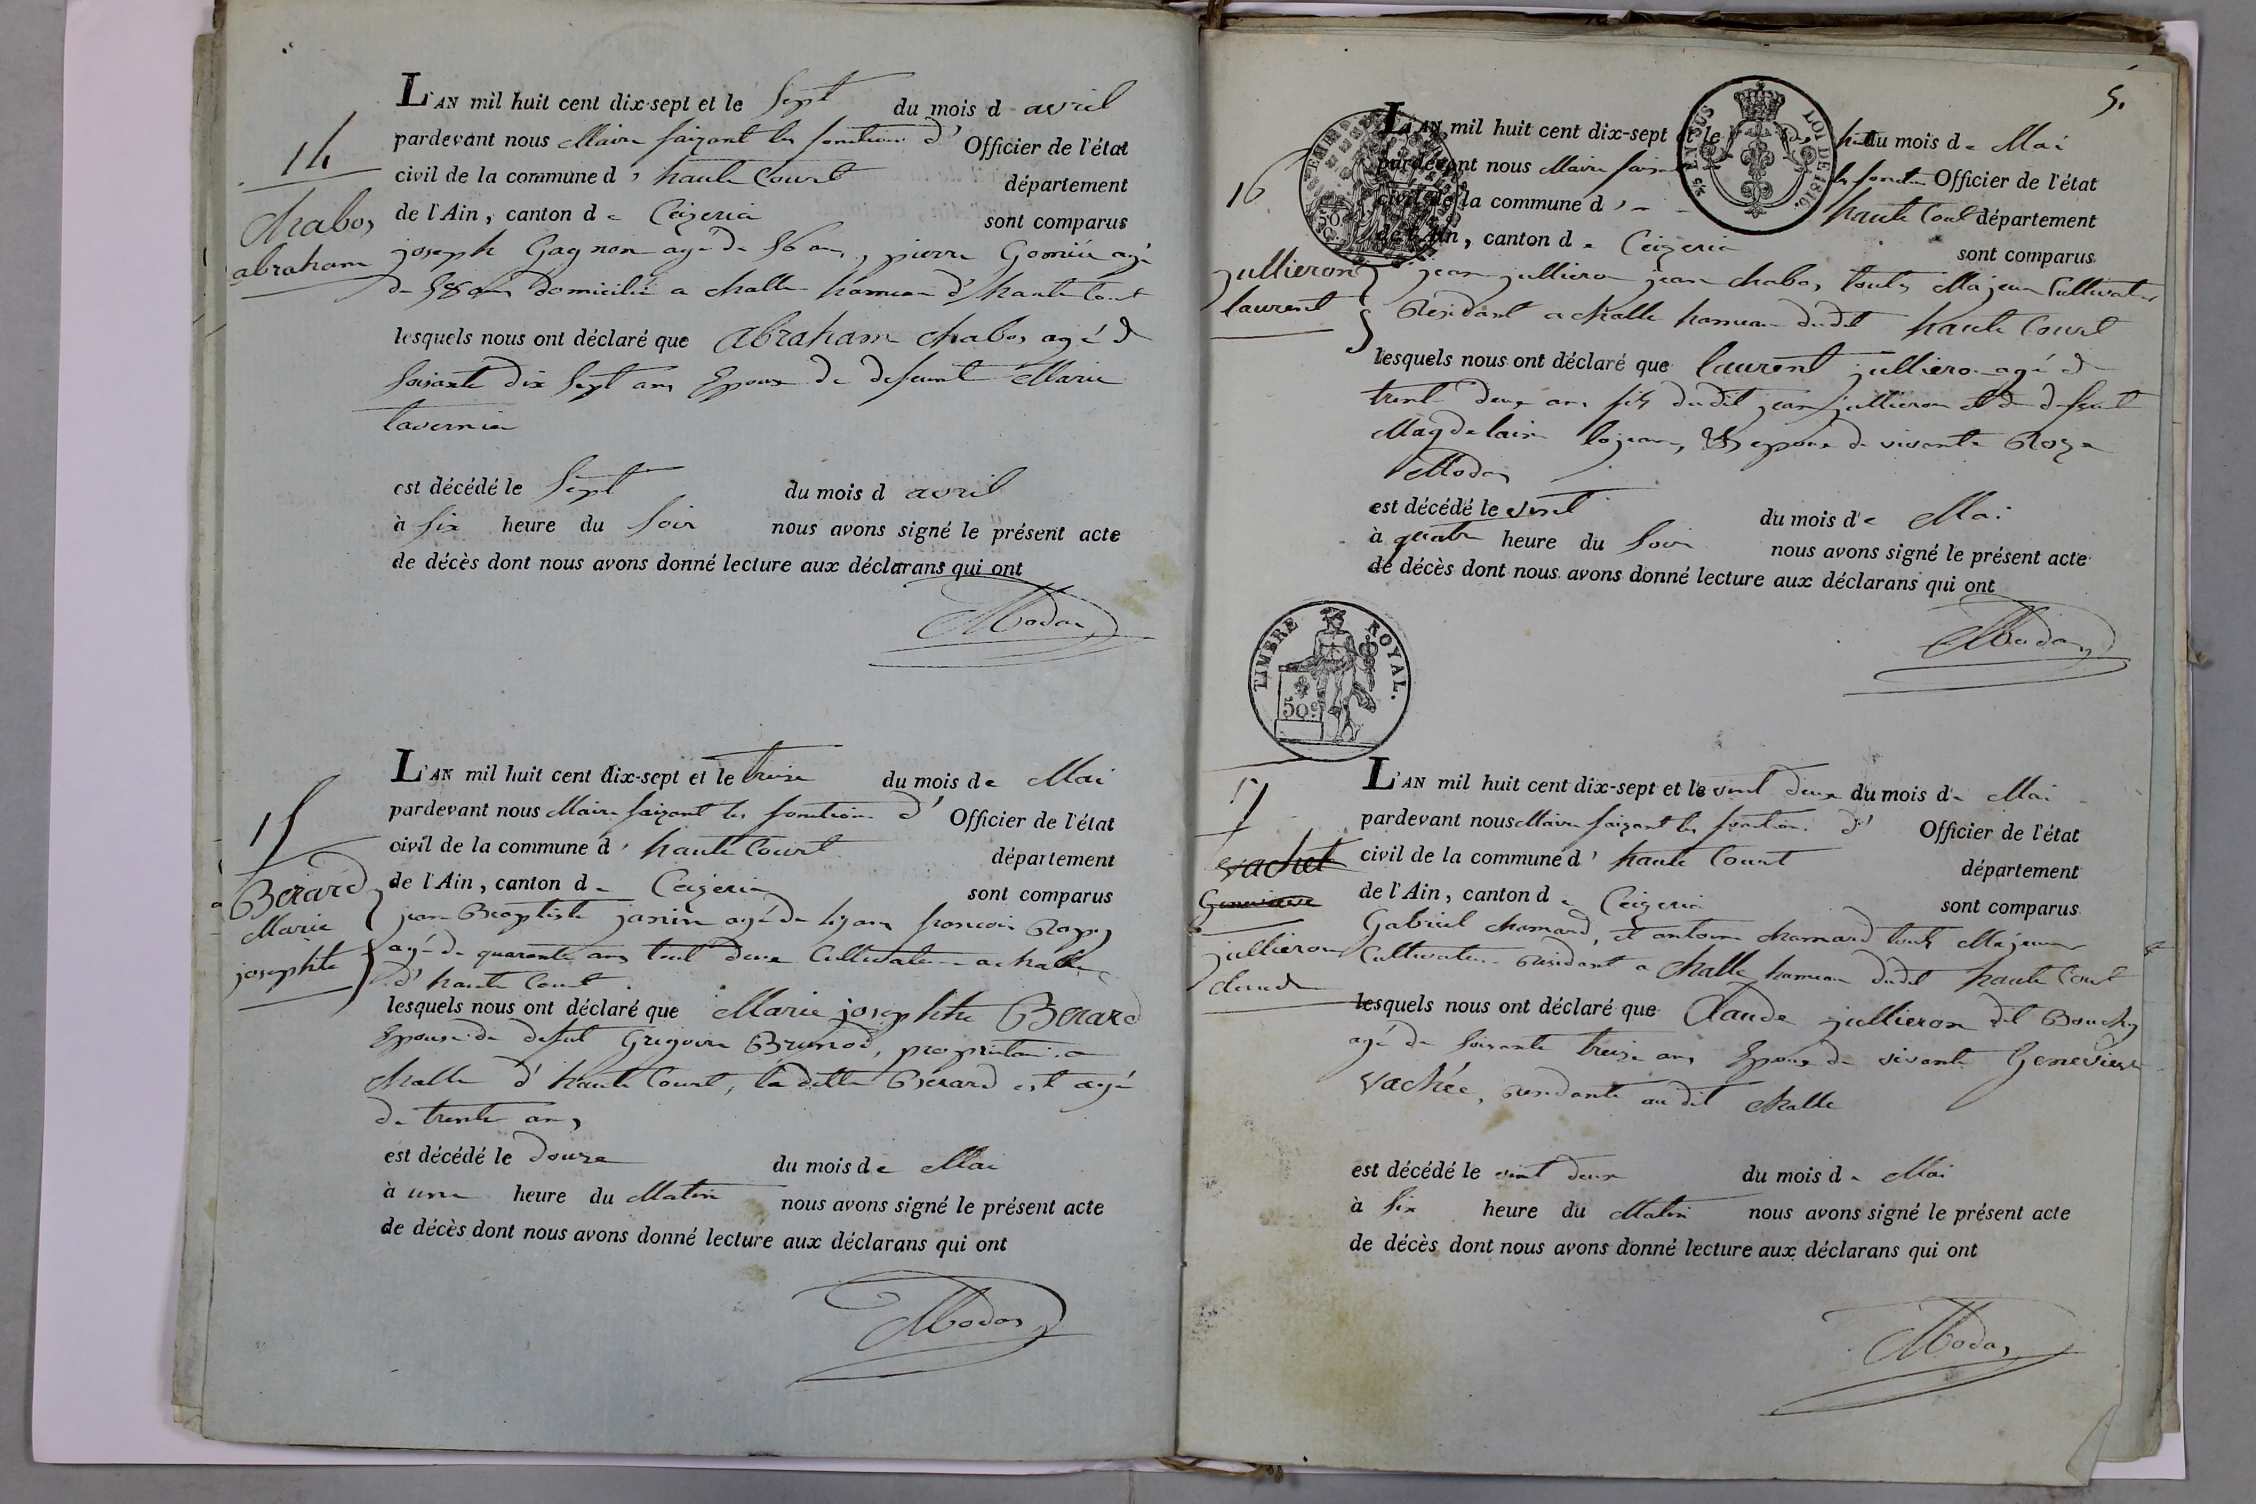 14
chabos
abraham
L'AN mil huit cent dix-sept et le Sept du mois d avril
pardevant nous Maire faizant les fonction d' Officier de l'état
civil de la commune d' haute Court département
de l'Ain, canton de Ceizeria sont comparus
joseph Gagnon agé de 56 ans, pierre Gomiée agé
de 58 ans domicilié a challe hameau d'haute Court
lesquels nous ont déclaré que abraham chabos agé de
soixante dix Sept ans Epoux de defeunt Marie
tavernier
est décédé le Sept du mois d avril
à six heure du soir nous avons signé le présent acte
de décès dont nous avons donné lecture aux déclarans qui ont
Modas
15
Bérard
Marie
josephte
L'AN mil huit cent dix-sept et le treize du mois de Mai
pardevant nous Maire faizant les fonction d' Officier de l'état
civil de la commune d' haute Court département
de l'Ain, canton de Ceizeria sont comparus
jean Baptiste janin agé de ans francois
agé de quarante ans tout deux Cultivateur a challe
d'haute Court
lesquels nous ont déclaré que Marie josephte Berard
Epouse de defut Grigoire Brunod, proprietaire a
challe d'haute Court, la ditte Bérard est agé
de trente ans
est décédé le douze du mois de Mai
à une heure du Matin nous avons signé le présent acte
de décès dont nous avons donné lecture aux déclarans qui ont
Modas
5.
16
jullieron
laurent
EN SUS LOI DE 1816.
L'AN mil huit cent dix-sept et le du mois de Mai
pardevant nous Maire les fonction Officier de l'état
civil de la commune d' haute Court département
de l'Ain, canton de Ceizeria sont comparus
jean jullieron jean chabos, touts Majeur Cultivateur
Residant a challe hameau dudit haute Court
lesquels nous ont déclaré que laurent jullieron agé de
trente deux ans fils dudit jean jullieron et de defeunt
Magdelaine, epoux de vivante Roze
Modas
est décédé le vint du mois de Mai
à quatre heure du Soir nous avons signé le présent acte
de décès dont nous avons donné lecture aux déclarans qui ont
Modas
TIMBRE ROYAL.
50 c
17
vachet
Genevieve
jullieron
claude
L'AN mil huit cent dix-sept et le vint deux du mois de Mai
pardevant nous Maire faizant les fonction d' Officier de l'état
civil de la commune d' haute Court département
de l'Ain, canton de Ceizeria sont comparus
Gabriel chamard, et antoine chamard touts Majeur
Cultivateur Residant a challe hameau dudit haute Court
lesquels nous ont déclaré que Claude jullieron dit Bouchy
agé de soixante treize ans Epoux de vivante Genevieve
vachée, residante au dit challe
est décédé le vint deux du mois de Mai
à six heure du Matin nous avons signé le présent acte
de décès dont nous avons donné lecture aux déclarans qui ont
Modas